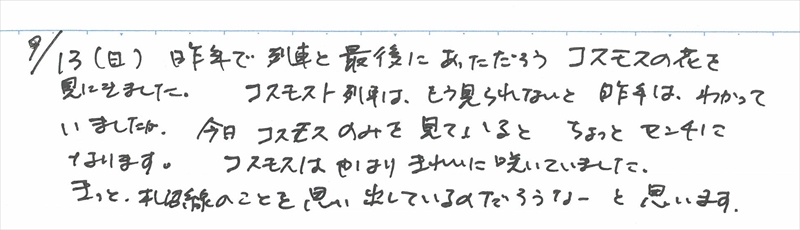 9/13(日) 昨年で列車と最後にあっただろうコスモスの花を
見にきました。 コスモスト列車は、もう見られないと昨年は、わかって
いましたが、今日コスモスのみを見ていると ちょっとセンチに
なります。 コスモスはやはりきれいに咲いていました。
きっと、札沼線のことを思い出しているのだろうなー と思います。